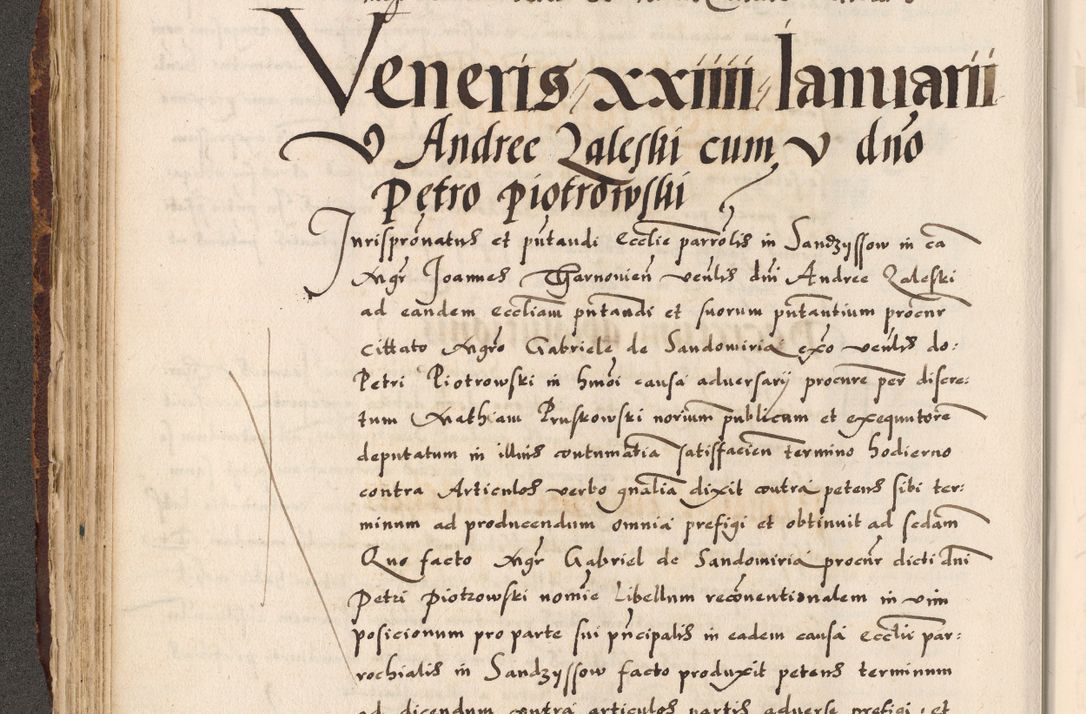 Veneris xxiiii Ianuarii
V Andree Zaleski cum V dno
Petro Piotrowski
Jurispronatus et pntandi Ecclie parrolis in Sandzyssow in ca
Mgr Joannes Tharnovien venlis dni Andree Zaleski
ad eandem eccliam pntandi et suorum pntantium procur
Cittato Mgro Gabriele de Sandomiria exo venlis do:
Petri Piotrowski in hmoi causa adversarij procure per discre:
tum Mathiam Pruskowski norium publicum et exequutore
deputatum in illius contumatia satisfacien termino hodierno
contra Articulos verbo gnalia dixit contra petens sibi ter:
minum ad producendum omnia prefigi et obtinuit ad sedam
Quo facto Mgr Gabriel de Sandomiria procur dicti dni
Petri Piotrowski nomie Libellum reconventionalem in vim
posicionum pro parte sui pncipalis in eadem causa ecclie par:
rochialis in Sandzyssow facto produxit petens terminum
ad dicendum contra articulos partis adverse prefigi et